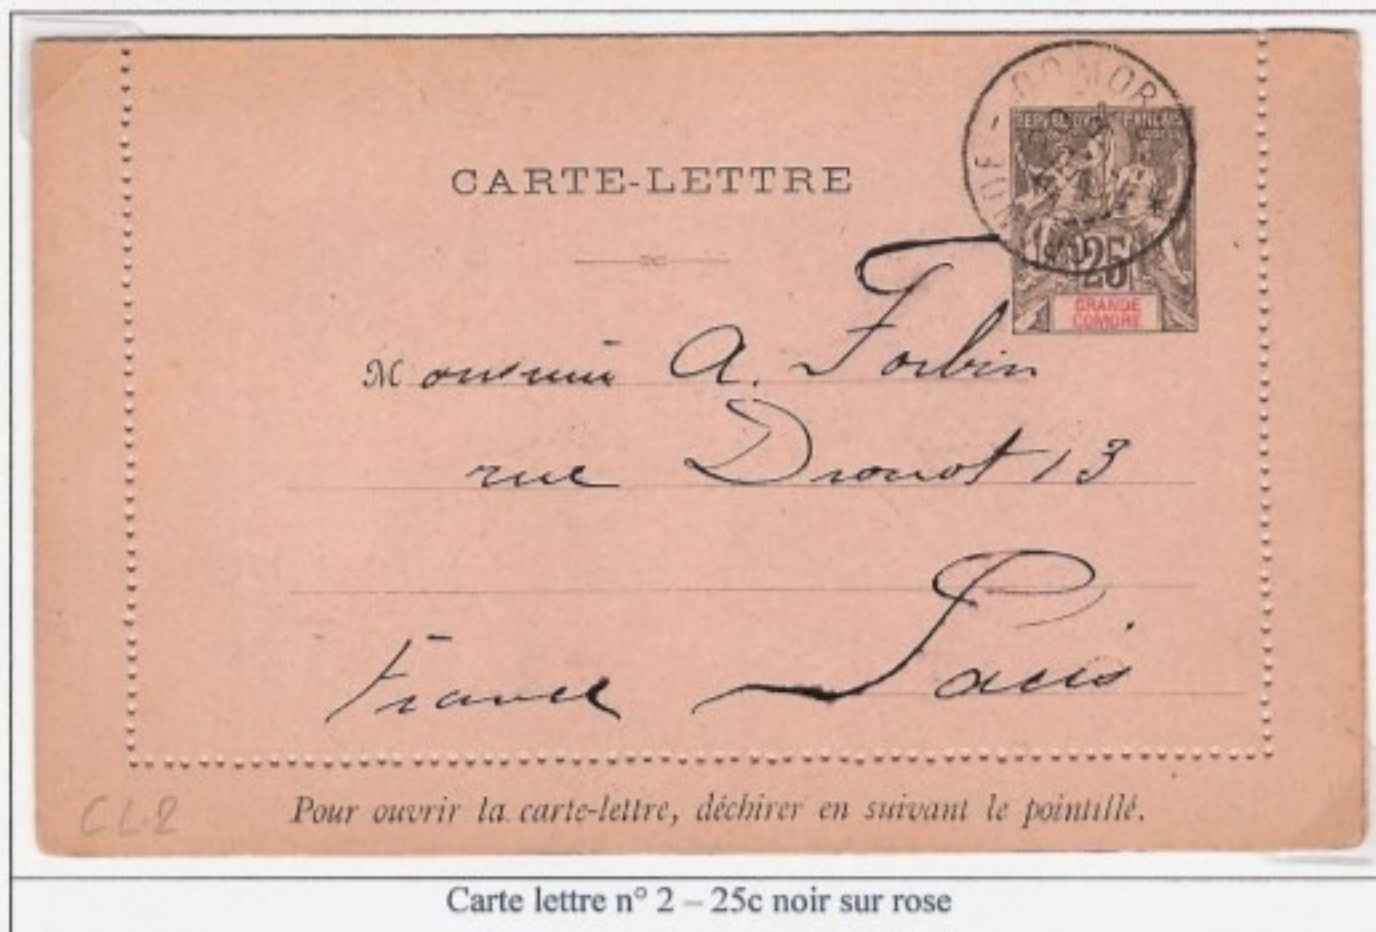 GRANDE-COMORE
CARTE-LETTRE
REPUBLIQUE FRANÇAISE
25
GRANDE
COMORE
Monsieur A. Forbin
rue Drouot 13
Paris
France
CL.2
Pour ouvrir la carte-lettre, déchirer en suivant le pointillé.
Carte lettre n° 2 – 25c noir sur rose